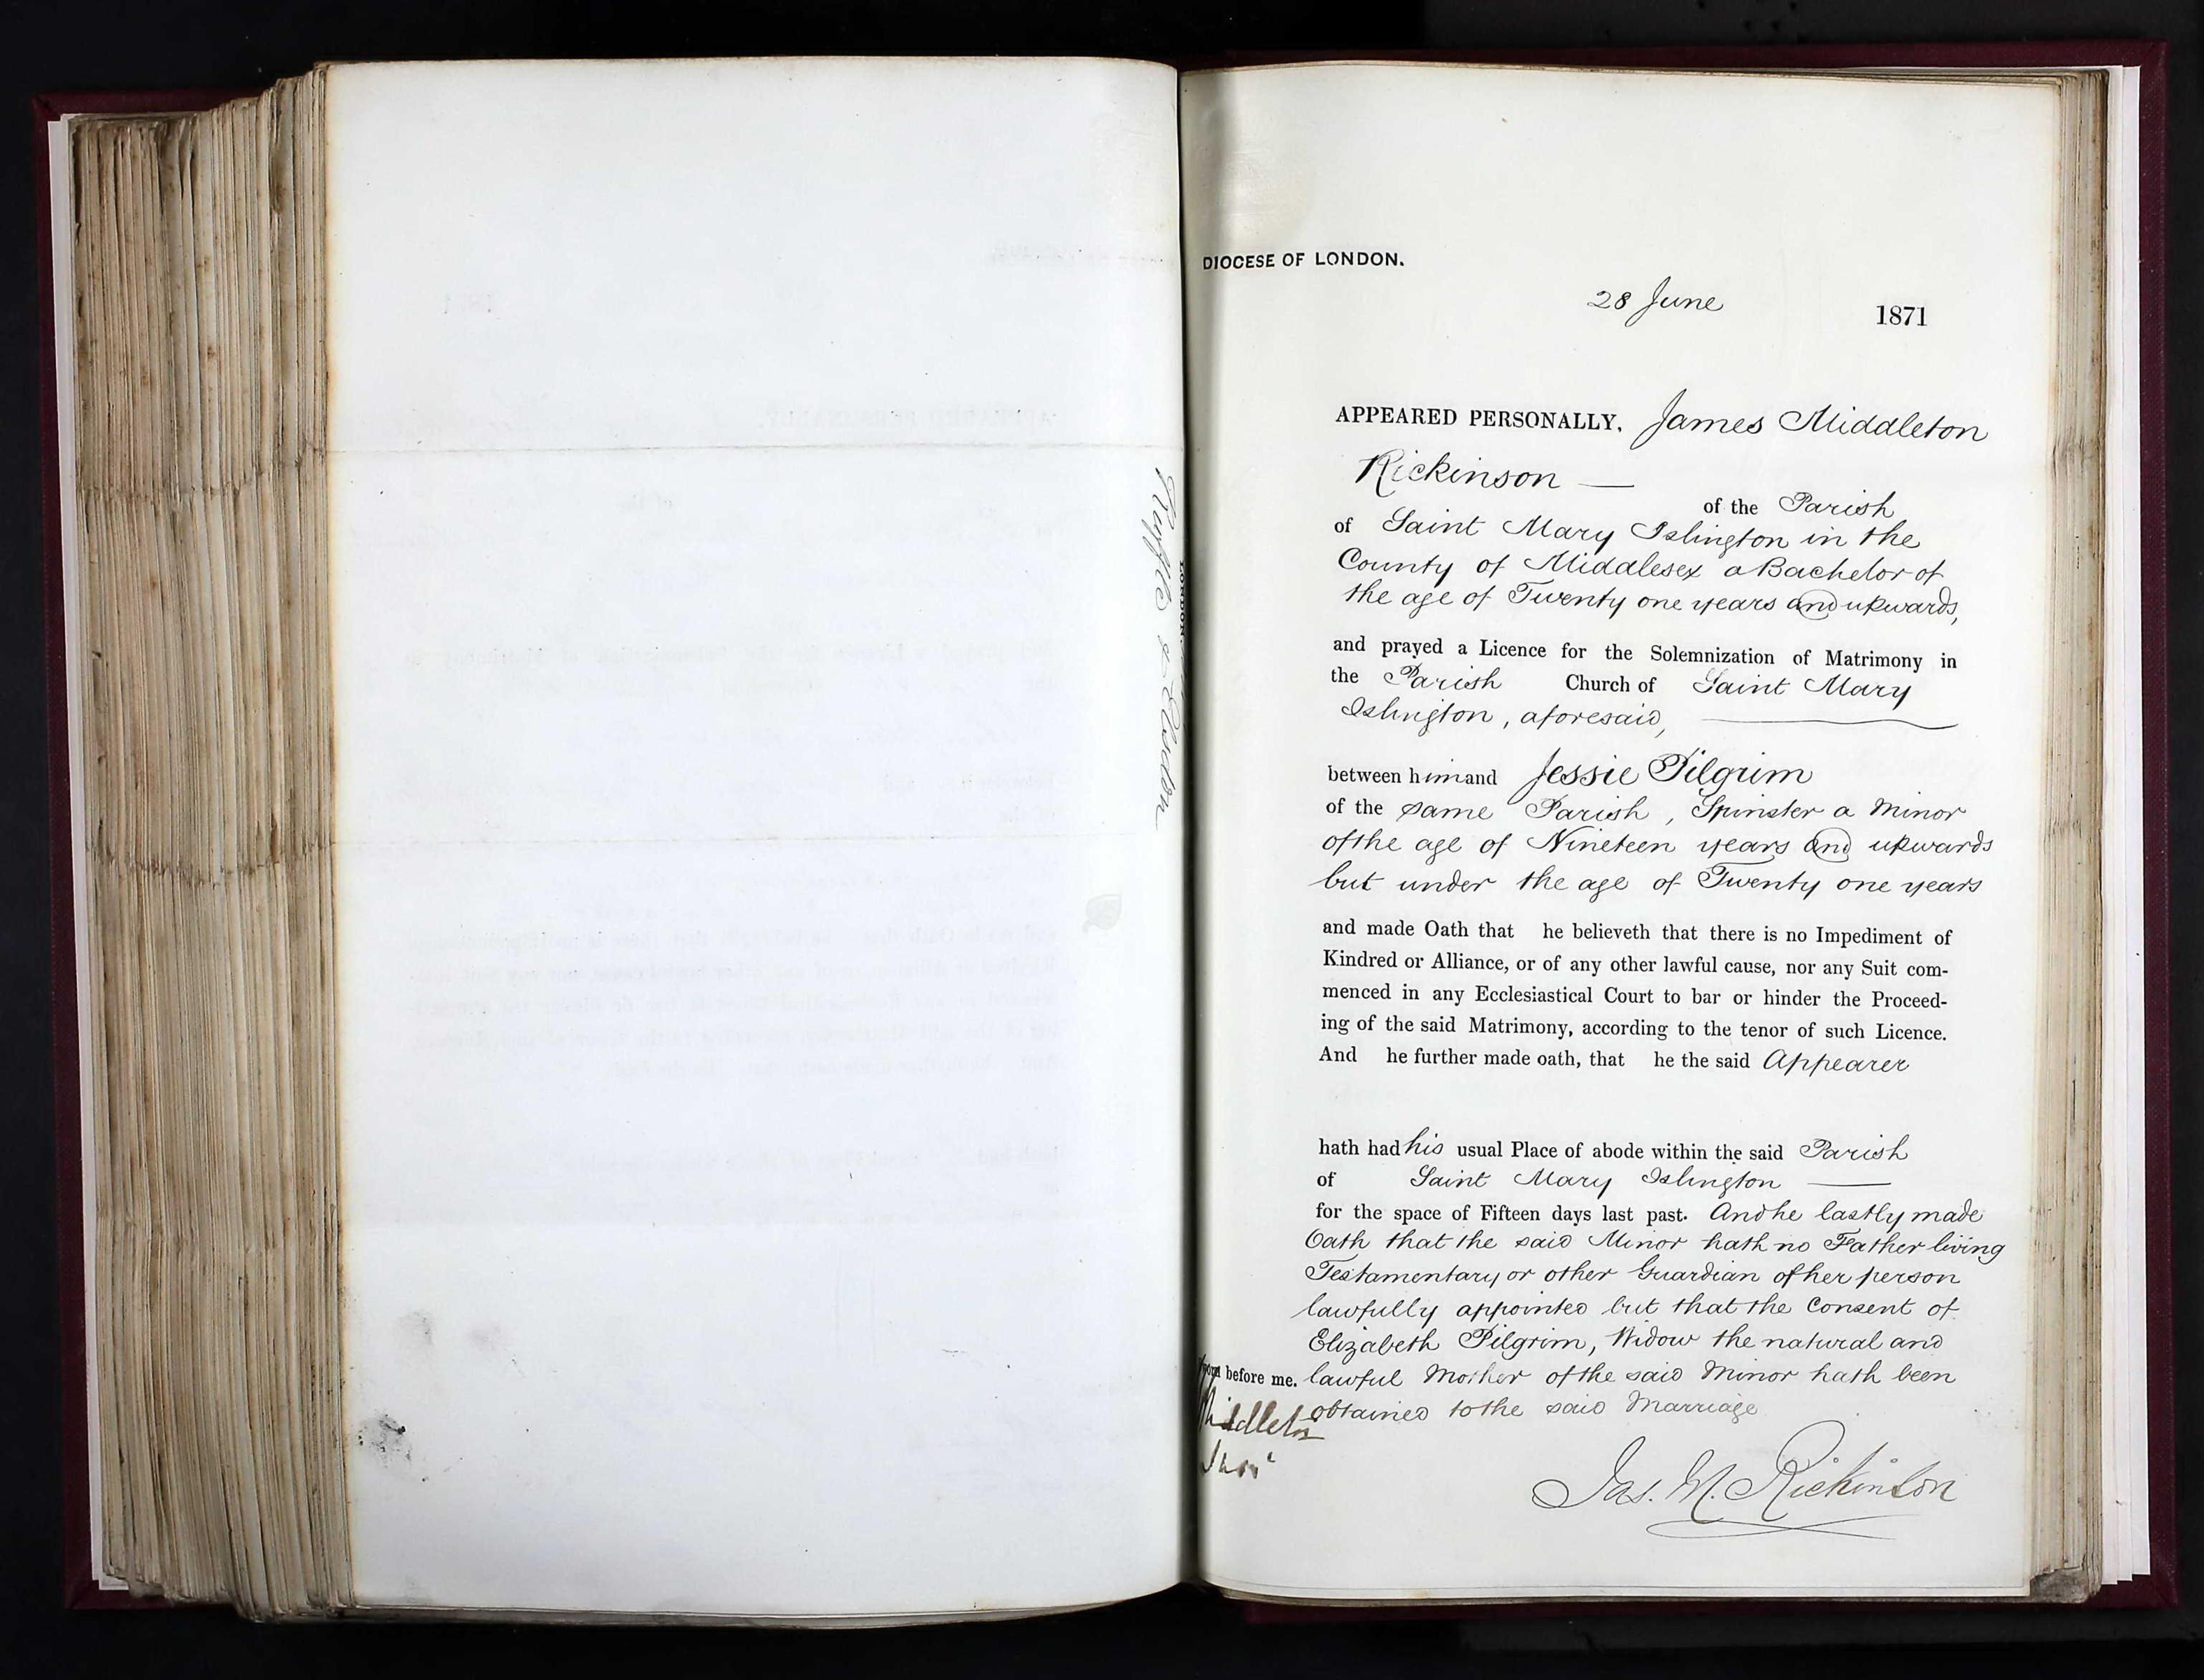 DIOCESE OF LONDON.
28 June 1871
APPEARED PERSONALLY, James Middleton
Rickinson —
of the Parish
of Saint Mary Islington in the
County of Middlesex a Bachelor of
the age of Twenty one years and upwards,
and prayed a Licence for the Solemnization of Matrimony in
the Parish Church of Saint Mary
Islington, aforesaid,
between him and Jessie Pilgrim
of the same Parish, Spinster a Minor
of the age of Nineteen years and upwards
but under the age of Twenty one years
and made Oath that he believeth that there is no Impediment of
Kindred or Alliance, or of any other lawful cause, nor any Suit com-
menced in any Ecclesiastical Court to bar or hinder the Proceed-
ing of the said Matrimony, according to the tenor of such Licence.
And he further made oath, that he the said Appearer
hath had his usual Place of abode within the said Parish
of Saint Mary Islington —
for the space of Fifteen days last past. And he lastly made
Oath that the said Minor hath no Father living
Testamentary or other Guardian of her person
lawfully appointed but that the Consent of
Elizabeth Pilgrim, Widow the natural and
before me. lawful Mother of the said Minor hath been
obtained to the said Marriage
Jas. M. Rickinson